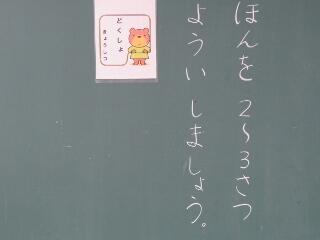 ほんを 2～3さつ
よういしましょう。
どくしょ
きょうしつ